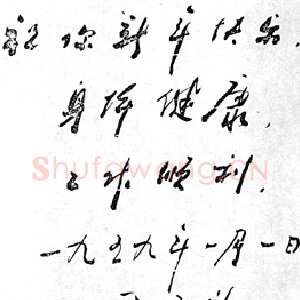 祝你新年快乐.
身体健康.
工作顺利.
Shufawang.CN
一九五九年一月一日